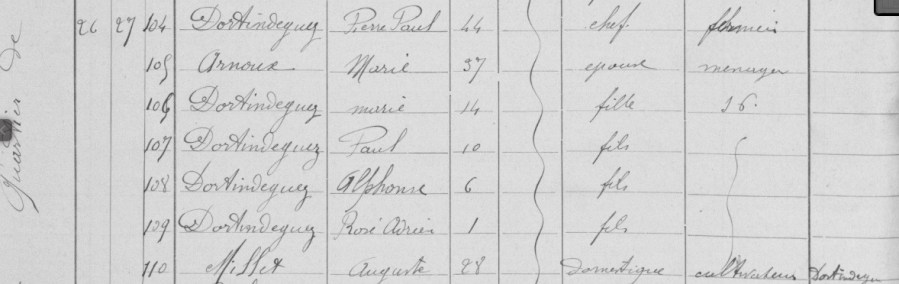 Quartier de
26 27 104 Dortindeguez Pierre Paul 44 chef fermier
105 Arnoux Marie 37 epouse menager
106 Dortindeguez marie 14 fille id.
107 Dortindeguez Paul 10 fils
108 Dortindeguez Alphonse 6 fils
109 Dortindeguez Rosé Adrien 1 fils
110 Millet Auguste 28 Domestique cultivateur Dortindeguez